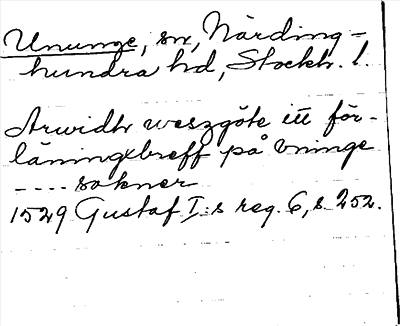 Ununge, sn, Närding-
hundra hd, Stockh. l.
Arwidh weszgöte itt för-
läningxbreff på vninge
---- sokner
1529 Gustaf I:s reg. 6, s. 252.